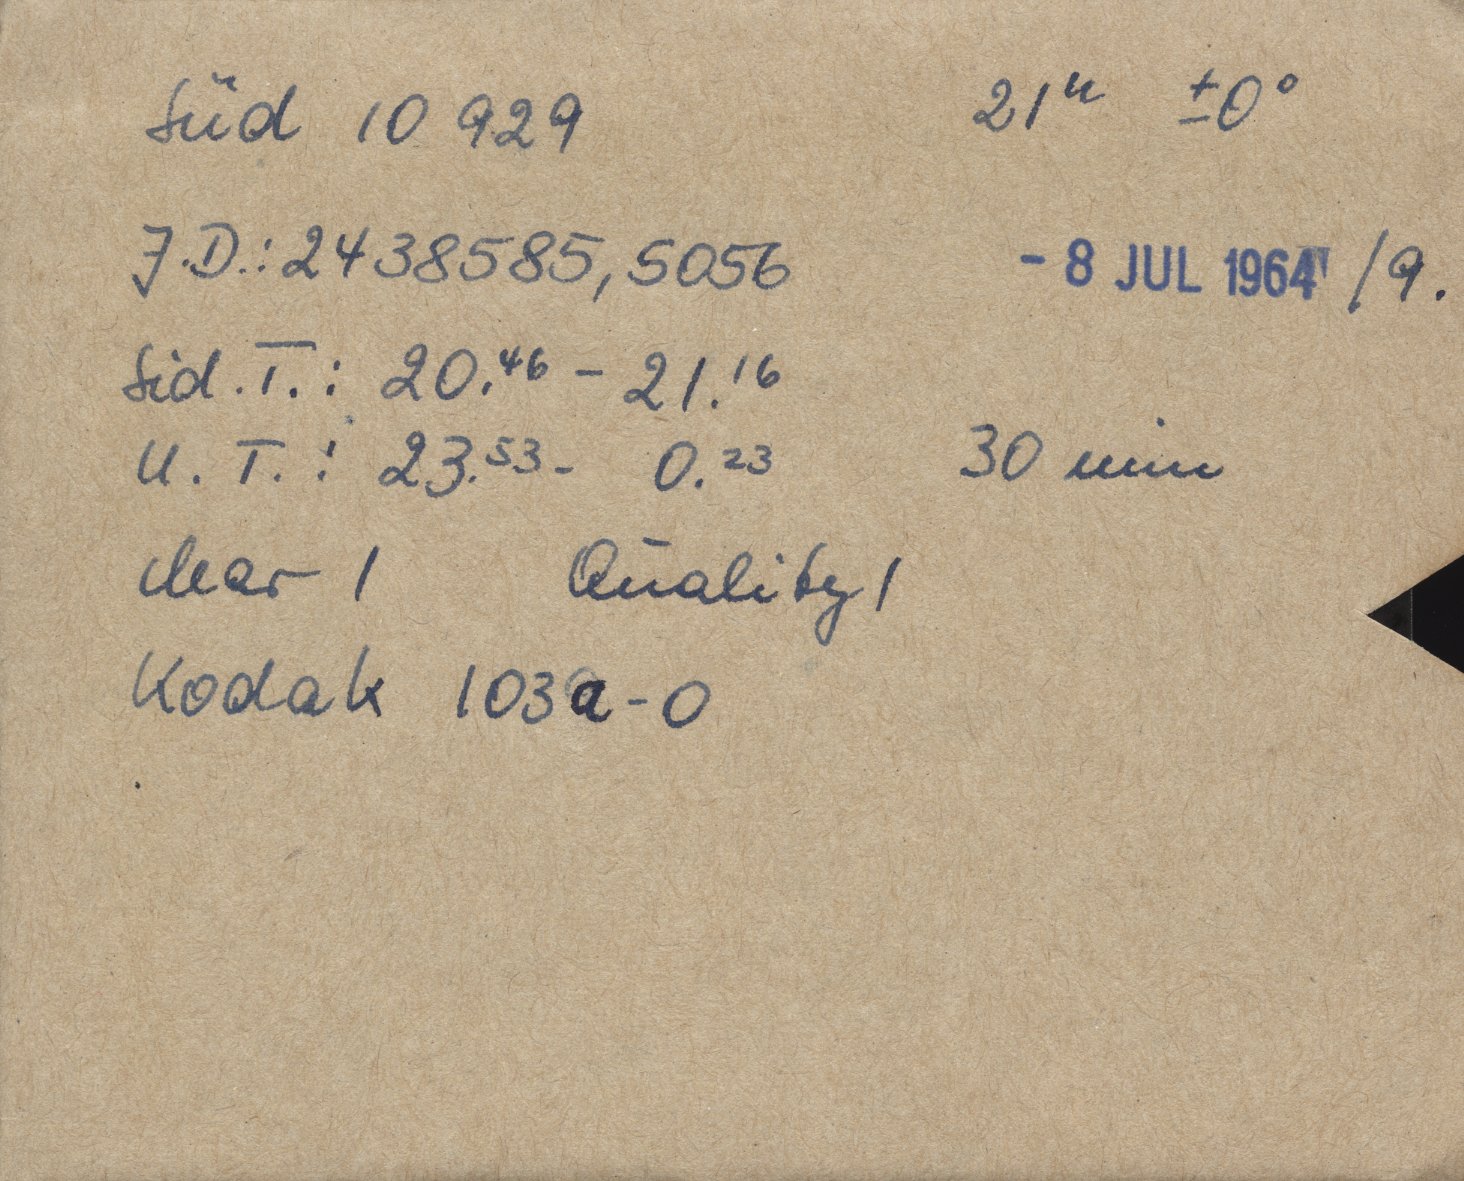 Süd 10 929 21ʰ ±0°
J.D.: 2438585,5056 - 8 JUL 1964 /9.
Sid.T.: 20.⁴⁶ - 21.¹⁶
U.T.: 23.⁵³ - 0.²³ 30 min
clear 1 Quality 1
Kodak 103a-O